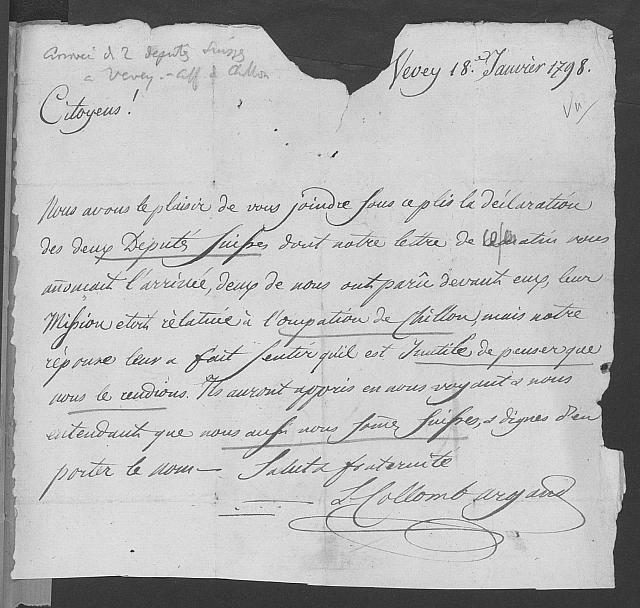 Annvée d 2 députés Suisses
a Vevey. - aff d Chillon
Vevey 18.e Janvier 1798.
Vu
Citoyens!
Nous avons le plaisir de vous joindre sous ce plis la déclaration
des deux Députés Suisses dont notre lettre de ce matin vous
annonçait l'arrivée, deux de nous ont parû devant eux, leur
Mission etoit rélative à l'occupation de Chillon, mais notre
réponse leur a fait sentir qu'il est Inutile de penser que
nous le rendions. Ils auront appris en nous voyant & nous
entendant que nous aussi nous somes Suisses, & dignes d'en
porter le nom — Salut & fraternité
L Collomb argand